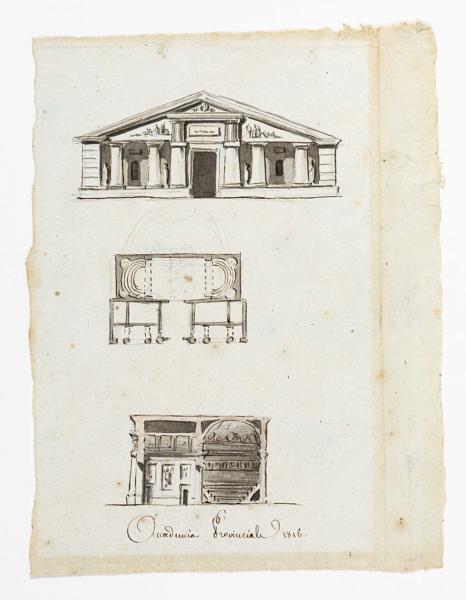 Accademia Provinciale 1816.